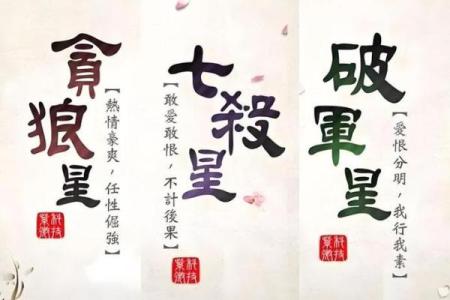 貪狼星
【熱情豪爽，任性倔強】
科技紫微
七殺星
【敢愛敢恨，不計後果】
科技紫微
破軍星
【愛恨分明，我行我素】
科技紫微